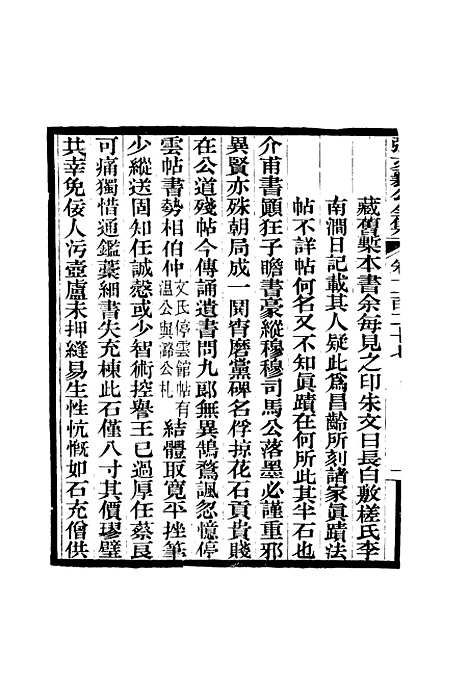 藏舊槧本書余每見之印朱文曰長白敷槎氏李
南澗日記載其人疑此爲昌齡所刻諸家眞蹟法
帖不詳帖何名又不知眞蹟在何所此其半石也
介甫書顚狂子瞻書豪縱穆穆司馬公落墨必謹重邪
異賢亦殊朝局成一鬨宵磨黨碑名俘掠花石貢貴賤
在公道殘帖今傳誦遺書問九郎無異鵠鶩諷忽憶停
雲帖書勢相伯仲文氏停雲館帖有溫公與潞公札結體取寬平挫筆
少縱送固知任誠慤或少智術控舉王已過厚任蔡良
可痛獨惜通鑑藁細書失充棟此石僅八寸其價璆璧
共幸免佞人污壺盧未押縫易生性忼慨如石充僧供